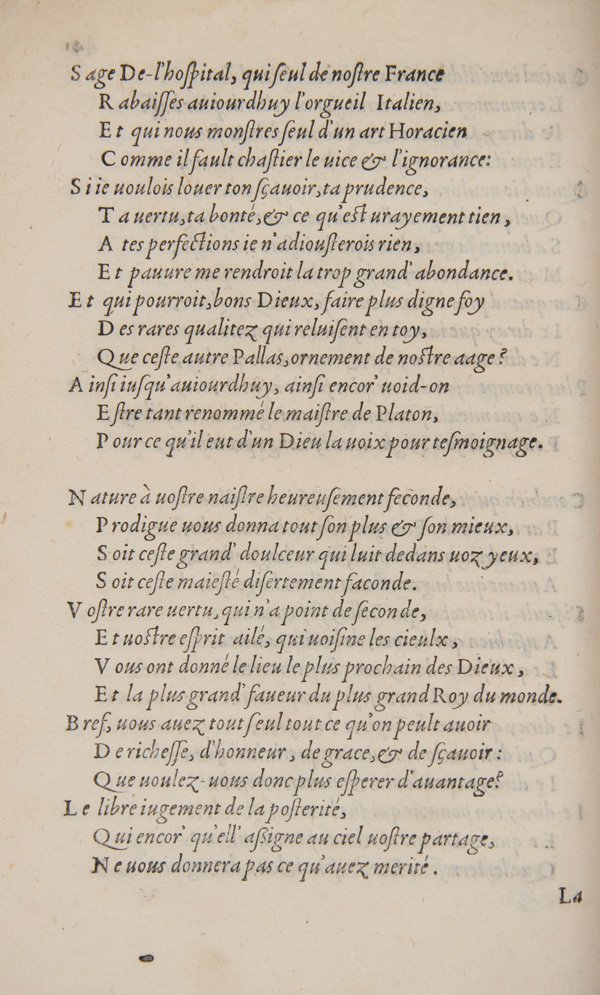 Sage De-l'hoſpital, qui ſeul de noſtre France
Rabaiſſes auiourdhuy l'orgueil Italien,
Et qui nous monſtres ſeul d'un art Horacien
Comme il fault chaſtier le uice & l'ignorance:
Si ie uoulois louer ton ſçauoir, ta prudence,
Ta uertu, ta bonté, & ce qu'eſt urayement tien,
A tes perfections ie n'adiouſterois rien,
Et pauure me rendroit la trop grand' abondance.
Et qui pourroit, bons Dieux, faire plus digne foy
Des rares qualitez qui reluiſent en toy,
Que ceſte autre Pallas, ornement de noſtre aage?
Ainſi iuſqu'auiourdhuy, ainſi encor' uoid-on
Eſtre tant renommé le maiſtre de Platon,
Pour ce qu'il eut d'un Dieu la uoix pour teſmoignage.
Nature à uoſtre naiſtre heureuſement feconde,
Prodigue uous donna tout ſon plus & ſon mieux,
Soit ceſte grand' doulceur qui luit dedans uoz yeux,
Soit ceſte maieſté diſertement faconde.
Voſtre rare uertu, qui n'a point de ſeconde,
Et uoſtre eſprit ailé, qui uoiſine les cieulx,
Vous ont donné le lieu le plus prochain des Dieux,
Et la plus grand' faueur du plus grand Roy du monde.
Bref, uous auez tout ſeul tout ce qu'on peult auoir
De richeſſe, d'honneur, de grace, & de ſçauoir:
Que uoulez-uous donc plus eſperer d'auantage?
Le libre iugement de la poſterité,
Qui encor' qu'ell' aſsigne au ciel uoſtre partage,
Ne uous donnera pas ce qu'auez merité.
La